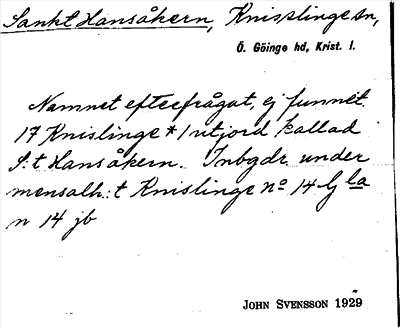 Sankt Hansåkern, Knislinge sn,
Ö. Göinge hd, Krist. l.
Namnet efterfrågat, ej funnet.
17 Knislinge * 1 utjord kallad
S:t Hansåkern. Inbgdr under
mensalh:t Knislinge no 14 G la
n 14 jb
JOHN SVENSSON 1929